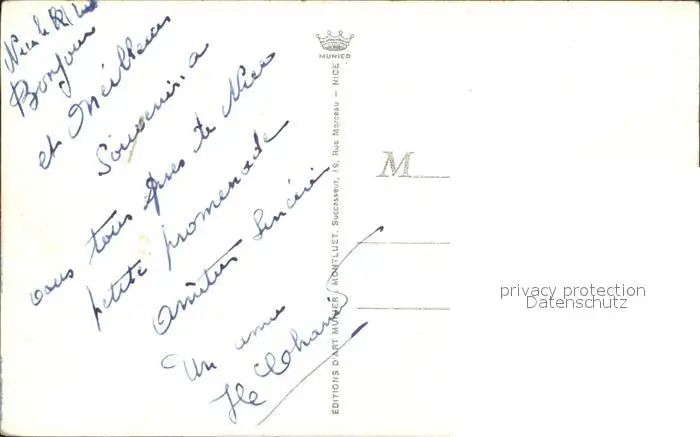 Nice le
Bonjour
et Meilleurs
Souvenirs a
vous tous de Nice
petite promenade
Amitiés Sincère
Un amie
MUNIER
EDITIONS D'ART MUNIER, MONTFLUET, Successeur, 19, Rue Marceau - NICE
M
privacy protection
Datenschutz